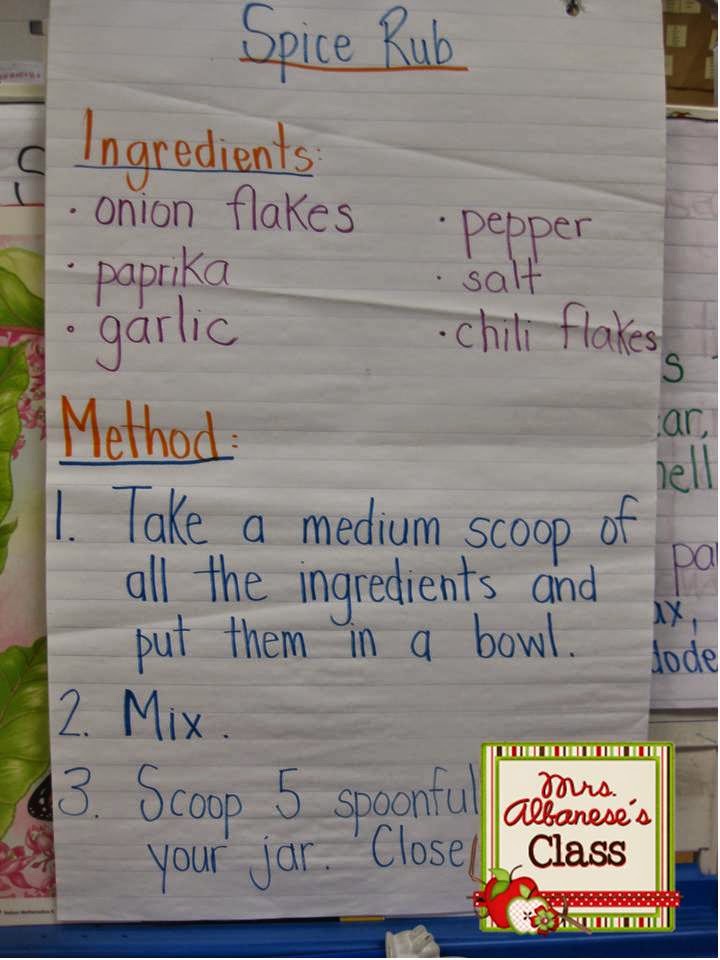 Spice Rub
Ingredients:
· onion flakes
· paprika
· garlic
· pepper
· salt
· chili flakes
Method:
1. Take a medium scoop of
all the ingredients and
put them in a bowl.
2. Mix.
3. Scoop 5 spoonful
your jar. Close
Mrs.
Albanese's
Class